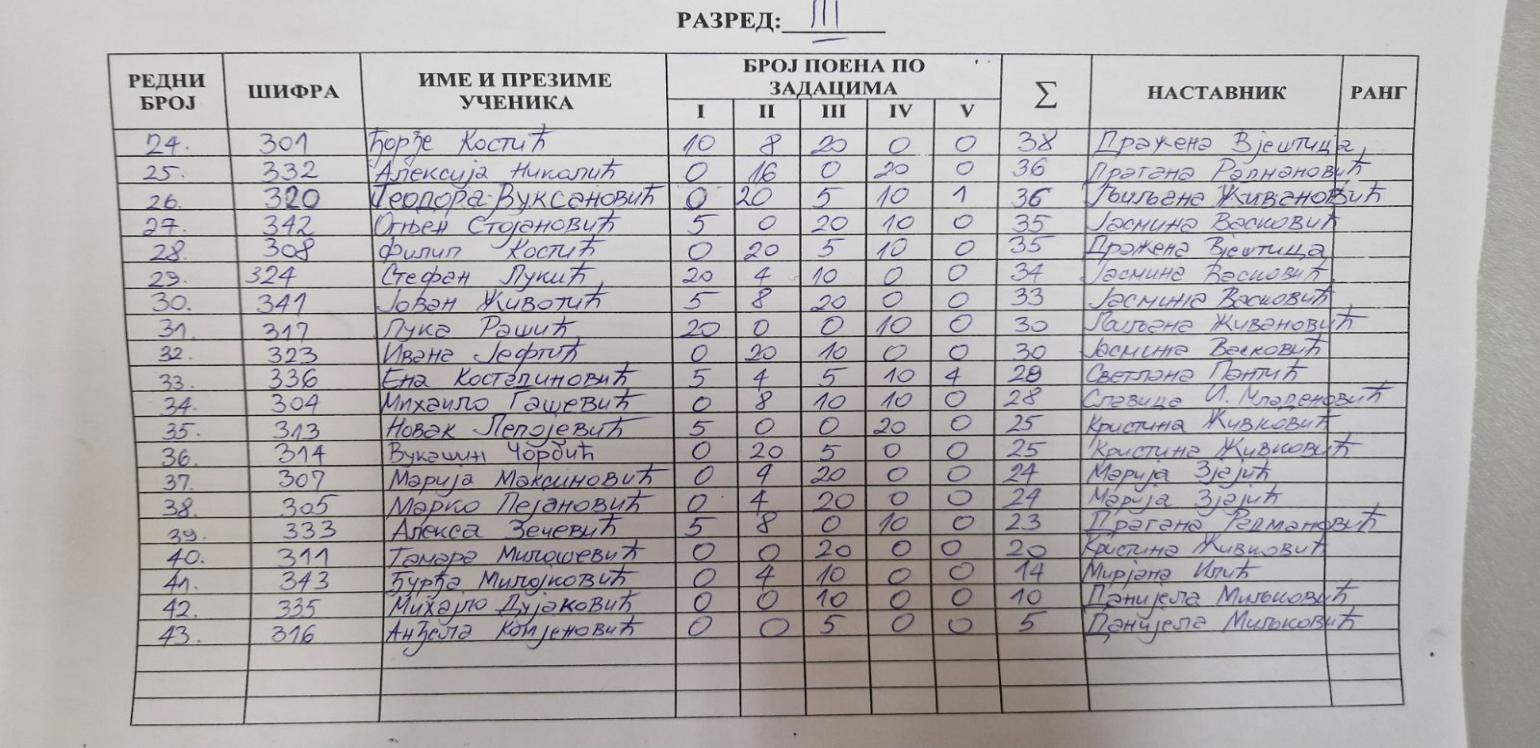 РАЗРЕД: III
РЕДНИ БРОЈ ШИФРА ИМЕ И ПРЕЗИМЕ УЧЕНИКА БРОЈ ПОЕНА ПО ЗАДАЦИМА Σ НАСТАВНИК РАНГ
I II III IV V
24. 301 Ђорђе Костић 10 8 20 0 0 38 Дражена Вјештица
25. 332 Алексија Николић 0 16 0 20 0 36 Драгана Радмановић
26. 320 Теодора Вуксановић 0 20 5 10 1 36 Љиљана Живановић
27. 342 Огњен Стојановић 5 0 20 10 0 35 Јасмина Васковић
28. 308 Филип Костић 0 20 5 10 0 35 Дражена Вјештица
29. 324 Стефан Лукић 20 4 10 0 0 34 Јасмина Васковић
30. 341 Јован Животић 5 8 20 0 0 33 Јасмина Васковић
31. 317 Лука Рашић 20 0 0 10 0 30 Љиљана Живановић
32. 323 Ивана Јефтић 0 20 10 0 0 30 Јасмина Васковић
33. 336 Ена Косталиновић 5 4 5 10 4 28 Светлана Пантић
34. 304 Михаило Гашевић 0 8 10 10 0 28 Славица И. Младеновић
35. 313 Новак Лепојевић 5 0 0 20 0 25 Кристина Живковић
36. 314 Вукашин Чорбић 0 20 5 0 0 25 Кристина Живковић
37. 307 Марија Максимовић 0 4 20 0 0 24 Марија Зјајић
38. 305 Марко Пејановић 0 4 20 0 0 24 Марија Зјајић
39. 333 Алекса Зечевић 5 8 0 10 0 23 Драгана Радмановић
40. 311 Тамара Милошевић 0 0 20 0 0 20 Кристина Живковић
41. 343 Ђурђа Милојковић 0 4 10 0 0 14 Мирјана Илић
42. 335 Михајло Дујаковић 0 0 10 0 0 10 Данијела Миљковић
43. 316 Анђела Копјеновић 0 0 5 0 0 5 Данијела Миљковић